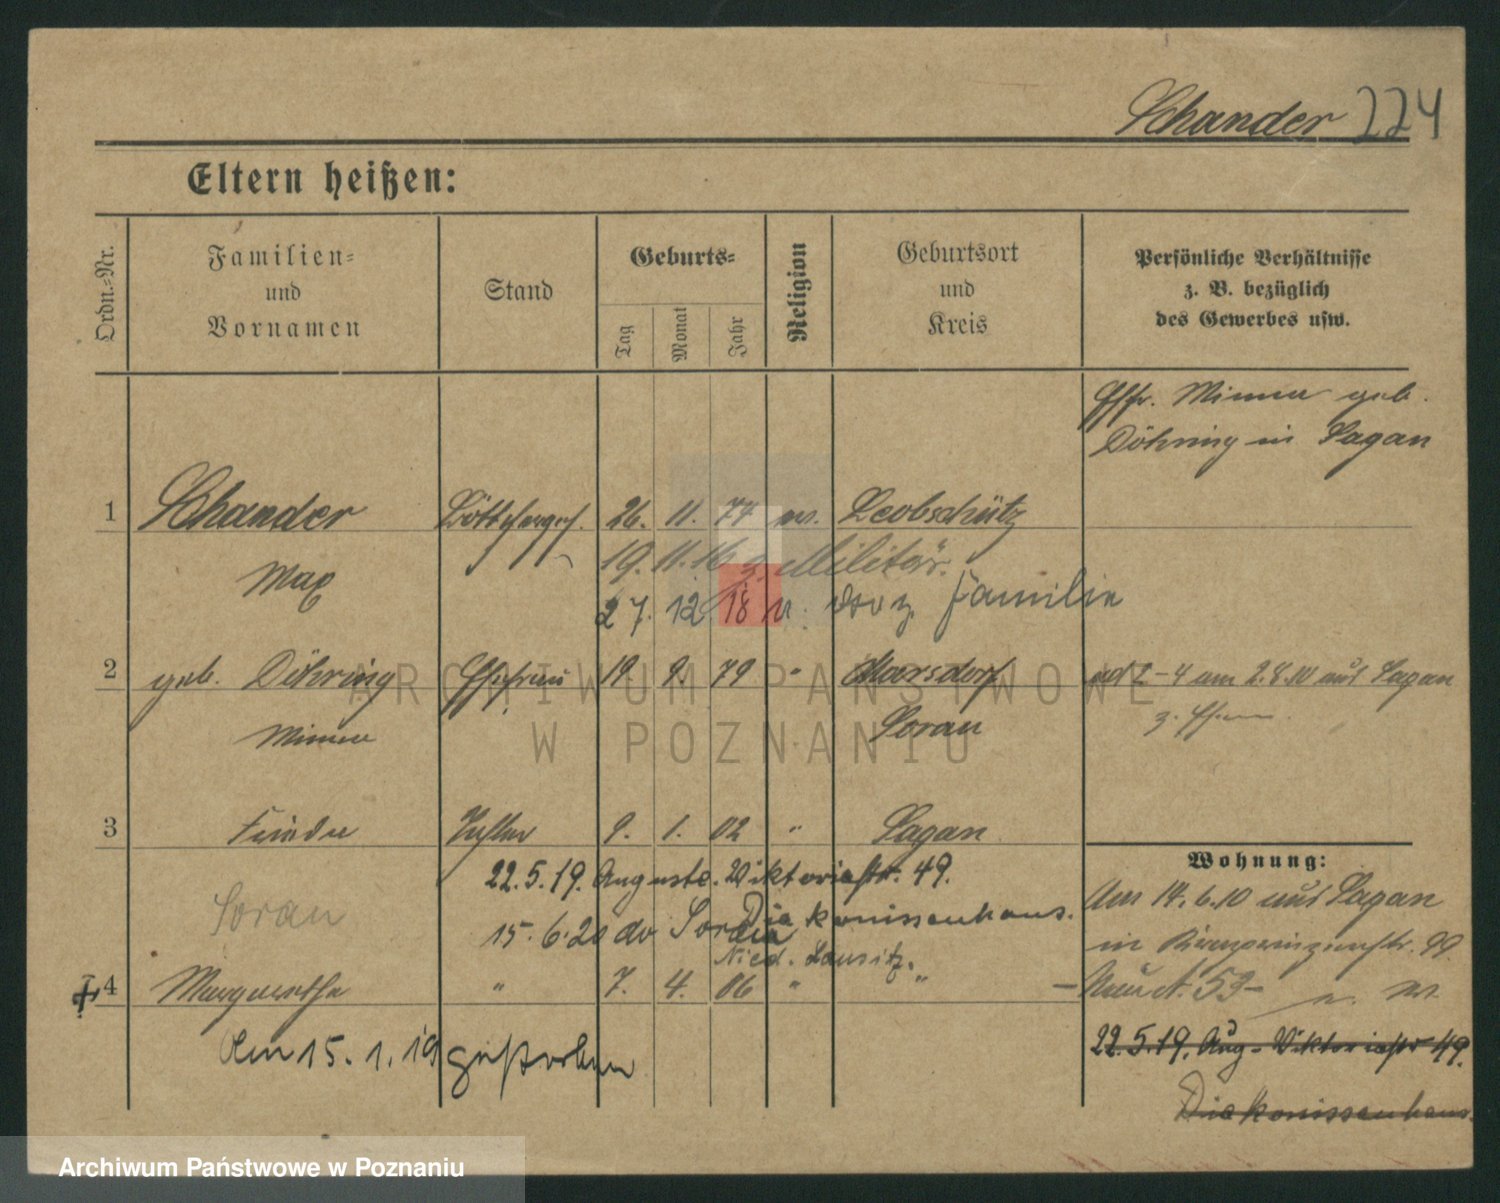 Schander 224
Eltern heißen:
Ordn.=Nr.
Familien=
und
Vornamen
Stand
Geburts=
Tag
Monat
Jahr
Religion
Geburtsort
und
Kreis
Persönliche Verhältnisse
z. B. bezüglich
des Gewerbes usw.
Ehefr. Minna geb.
Döhring in Sagan
1 Schander Böttcherges. 26. 11. 74 ev. Leobschütz
Max
19. 11. 16 z. Militär.
27. 12 18 v. dso z. Familie
2 geb. Döhring Ehefrau 19. 9. 79 " Marsdorf
ad 2-4 am 2.8.10 aus Sagan
Minna Sorau
z. Ehem.
3 Frieda Tochter 9. 1. 02 " Sagan
Wohnung:
22.5.19. Auguste-Viktoriastr. 49.
Diakonissenhaus.
Sorau 15.6.20 do Sorau
Nied. Lausitz.
Am 14.6.10 aus Sagan
in Kronprinzenstr. 99.
4 Margarethe " 7. 4. 06 " "
Am 15.1.19 gestorben
22.5.19. Aug-Viktoriastr 49.
Diakonissenhaus.
ARCHIWUM PAŃSTWOWE
W POZNANIU
Archiwum Państwowe w Poznaniu